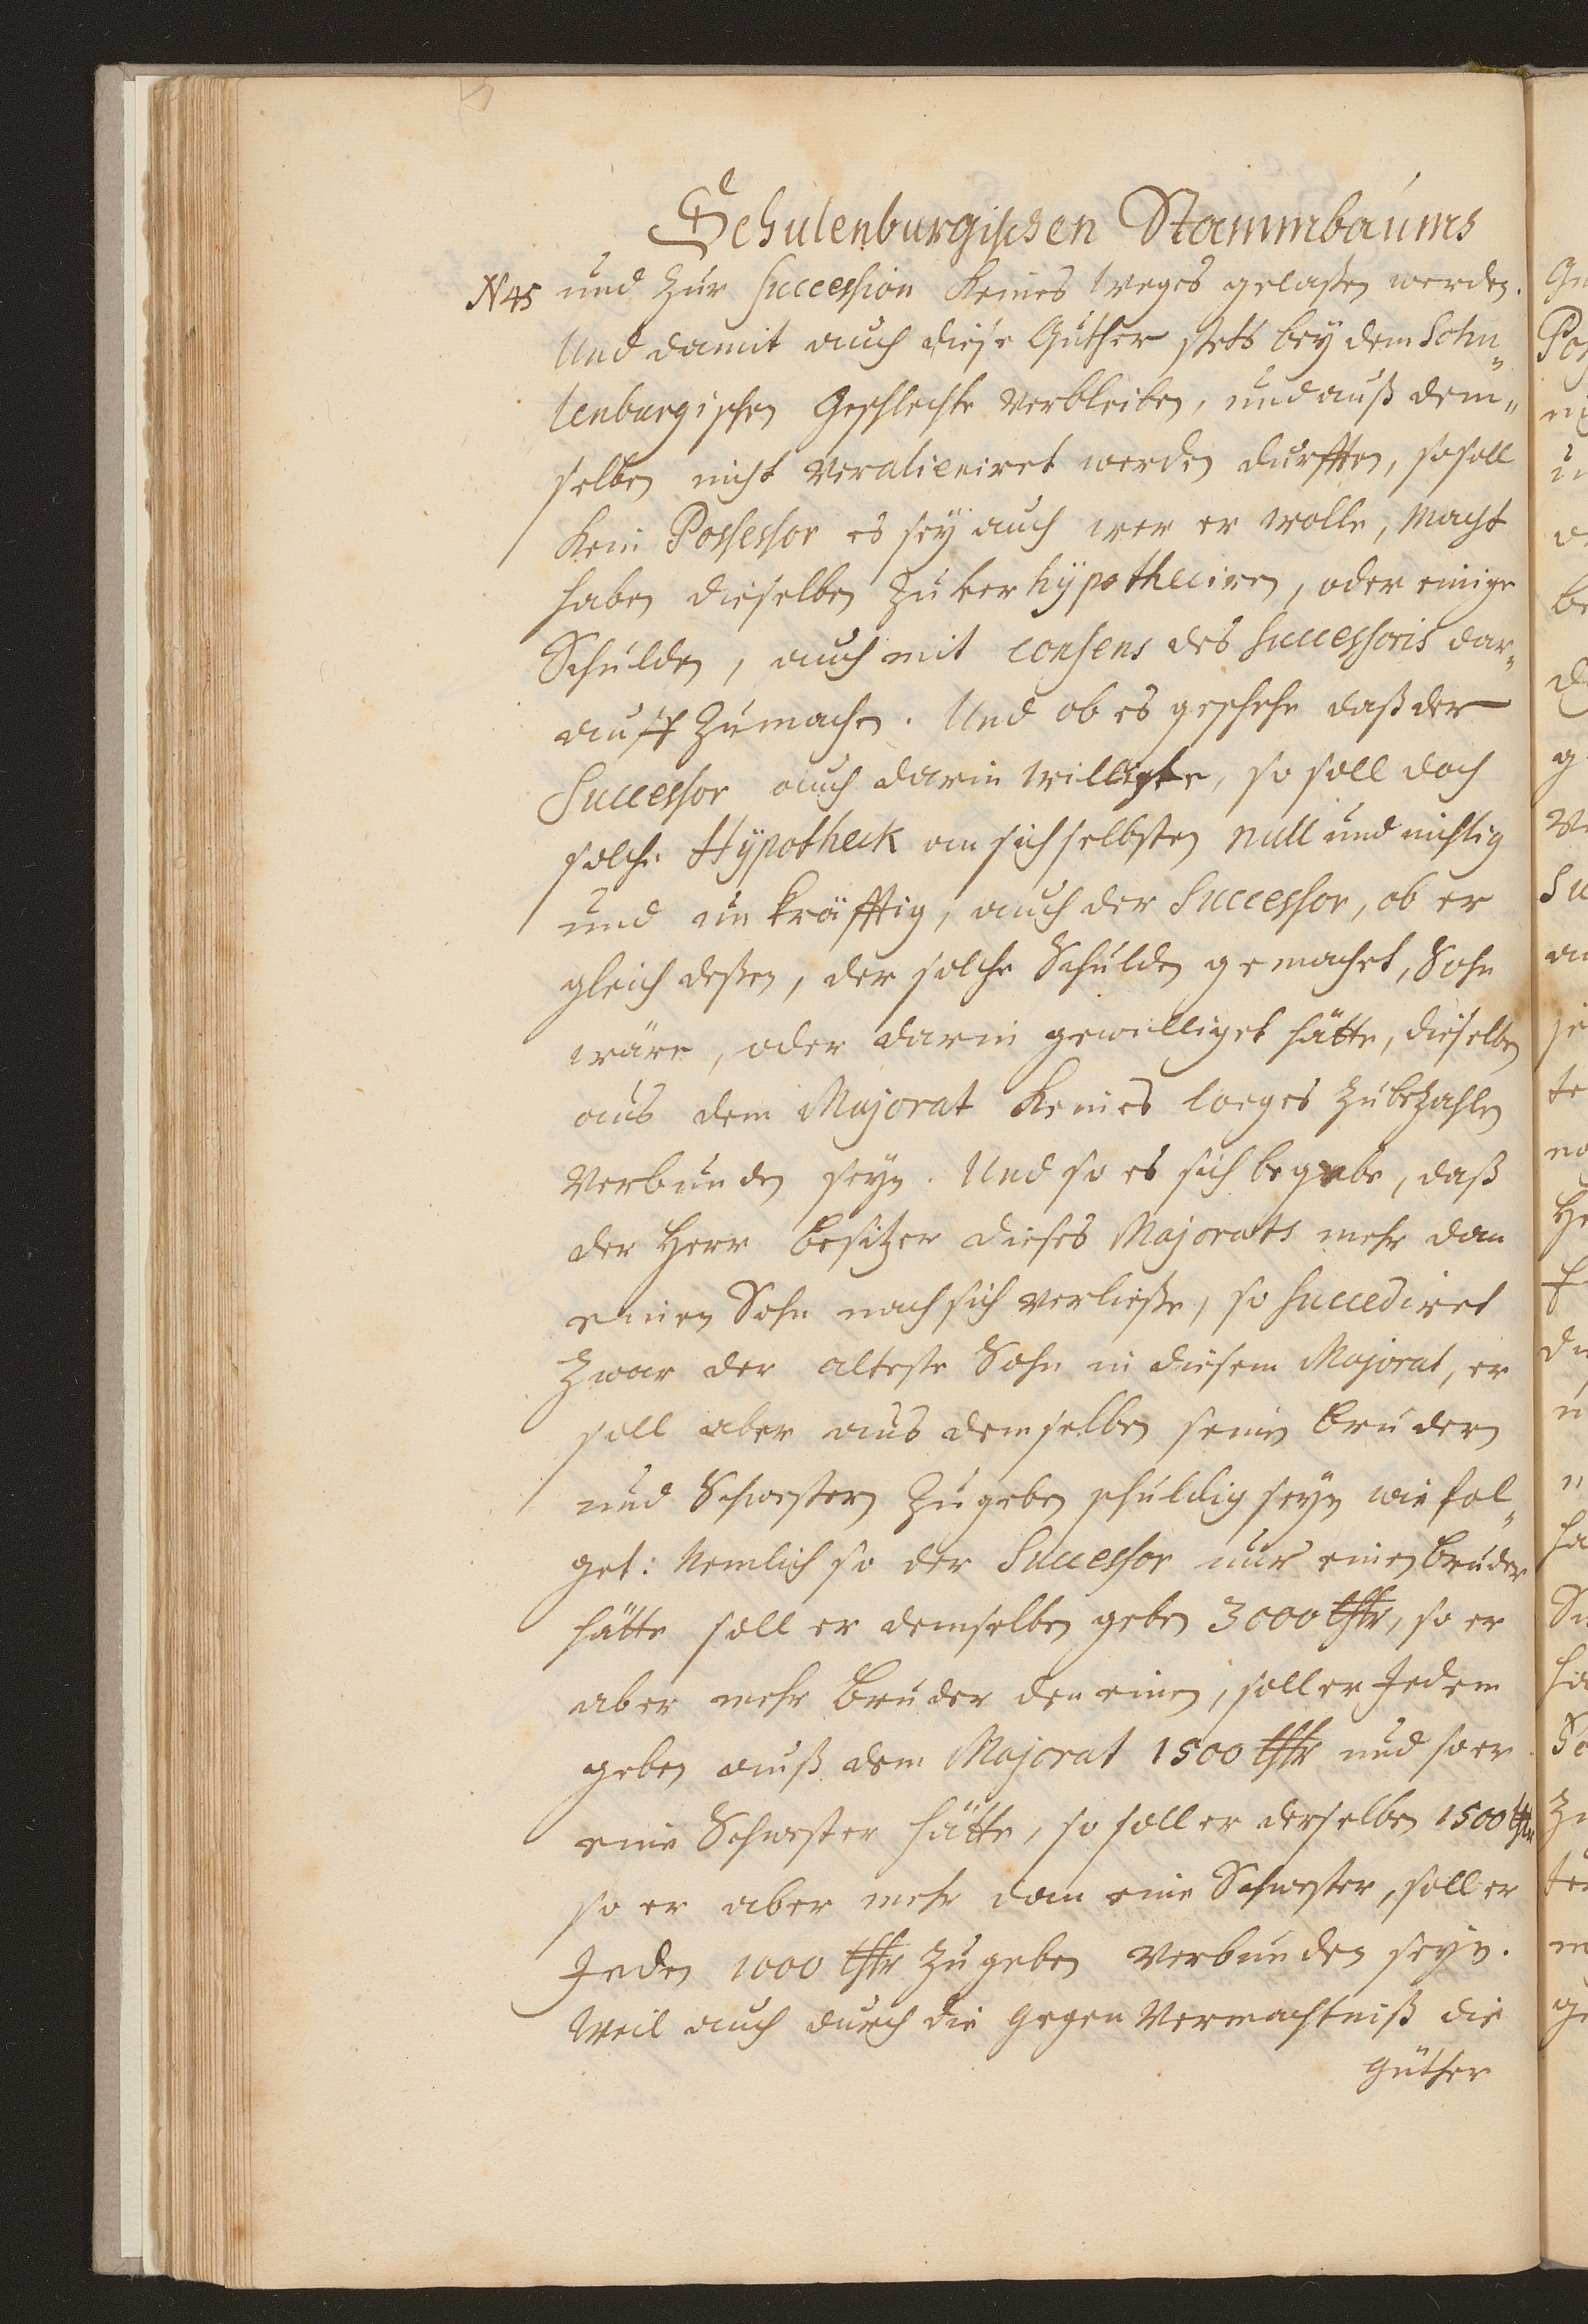 Schulenburgischen Stammbaums
N 45 und zur Succession keines weges gelaßen werden.
Und damit auch diese Güther stets bey dem Schu„
lenburgischen Geschlechte verbleiben, und auß dem„
selben nicht veralieniret werden durfften, so soll
kein Possessor es seÿ auch wer er wolle, macht
haben dieselben zu ver hÿpotheciren, oder einige
Schulden, auch mit consens des Successoris dar„
auff zu machen. Und ob es geschehe daß der
Successor auch darin willigte, so soll doch
solche Hÿpotheck an sich selbsten null und nichtig
und un kräfftig, auch der Successor, ob er
gleich deßen, der solche Schulden gemachet, Sohn
wäre, oder darin gewilliget hätte, dieselben
aus dem Majorat keines weges zu bezahlen
verbunden seyn. Und so es sich begebe, daß
der Herr Besitzer dieses Majorats mehr dan
einen Sohn nach sich verließe, so succediret
zwar der alteste Sohn in diesem Majorat, er
soll aber aus demselben seinen brudern
und Schwestern zu geben schuldig seyn wie fol„
get: Nemlich so der Successor nur einen bruder
hätte soll er demselben geben 3000 thlr, so er
aber mehr bruder den einen, soll er Jedem
geben auß dem Majorat 1500 thlr und so er
eine Schwester hätte, so soll er derselben 1500 thlr
so er aber mehr dan eine Schwester, soll er
Jeden 1000 thlr zu geben verbunden seyn.
Weil auch durch die gegen Vermachtniß die
Güther